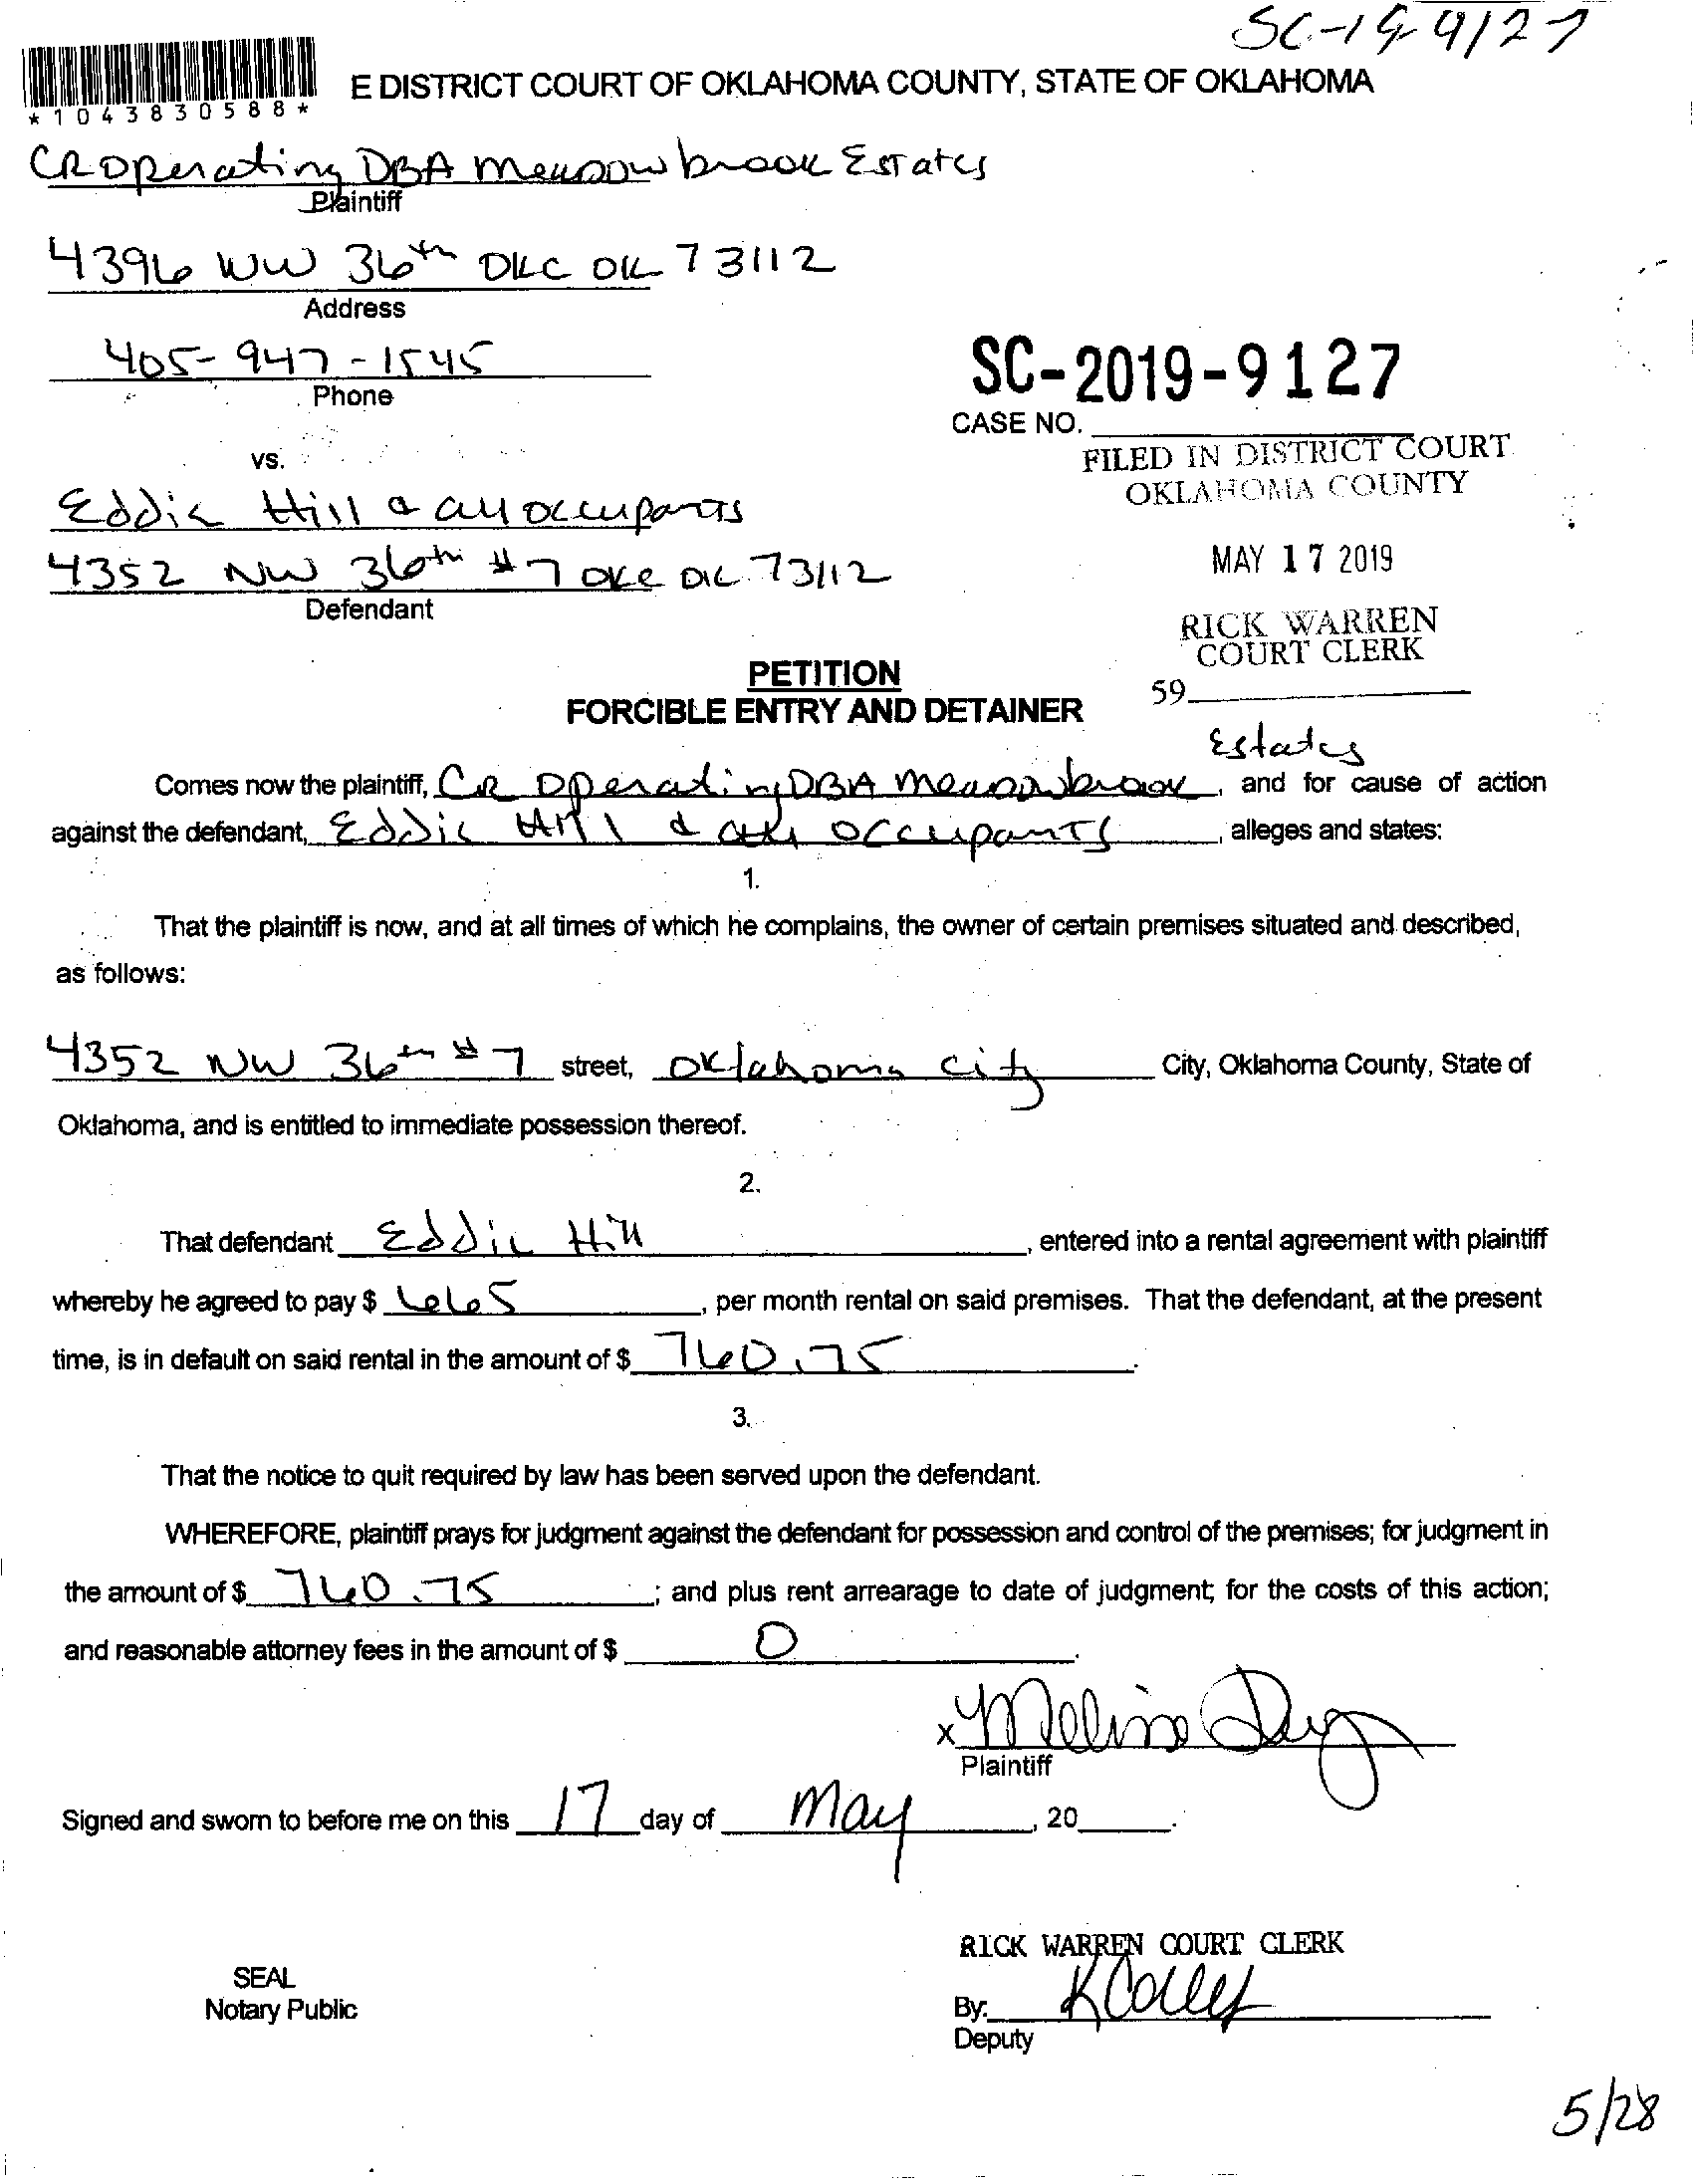 SC-19-9127
*1043830588*
E DISTRICT COURT OF OKLAHOMA COUNTY, STATE OF OKLAHOMA
CR Operating DBA Meadowbrook Estates
Plaintiff
4396 NW 36th OKC OK 73112
Address
405-947-1545
Phone
SC-2019-9127
CASE NO.
vs.
FILED IN DISTRICT COURT
OKLAHOMA COUNTY
Eddie Hill & all occupants
MAY 17 2019
4352 NW 36th #7 OKC OK 73112
Defendant
RICK WARREN
COURT CLERK
PETITION
59
FORCIBLE ENTRY AND DETAINER
Estates
Comes now the plaintiff, CR Operating DBA Meadowbrook, and for cause of action
against the defendant, Eddie Hill & all occupants, alleges and states:
1.
That the plaintiff is now, and at all times of which he complains, the owner of certain premises situated and described,
as follows:
4352 NW 36th #7 street, Oklahoma City City, Oklahoma County, State of
Oklahoma, and is entitled to immediate possession thereof.
2.
That defendant Eddie Hill, entered into a rental agreement with plaintiff
whereby he agreed to pay $ 665, per month rental on said premises. That the defendant, at the present
time, is in default on said rental in the amount of $ 760.75.
3.
That the notice to quit required by law has been served upon the defendant.
WHEREFORE, plaintiff prays for judgment against the defendant for possession and control of the premises; for judgment in
the amount of $ 760.75; and plus rent arrearage to date of judgment; for the costs of this action;
and reasonable attorney fees in the amount of $ 0.
x Melissa
Plaintiff
Signed and sworn to before me on this 17 day of May, 20 .
RICK WARREN COURT CLERK
SEAL
Notary Public
By:
Deputy
5/28